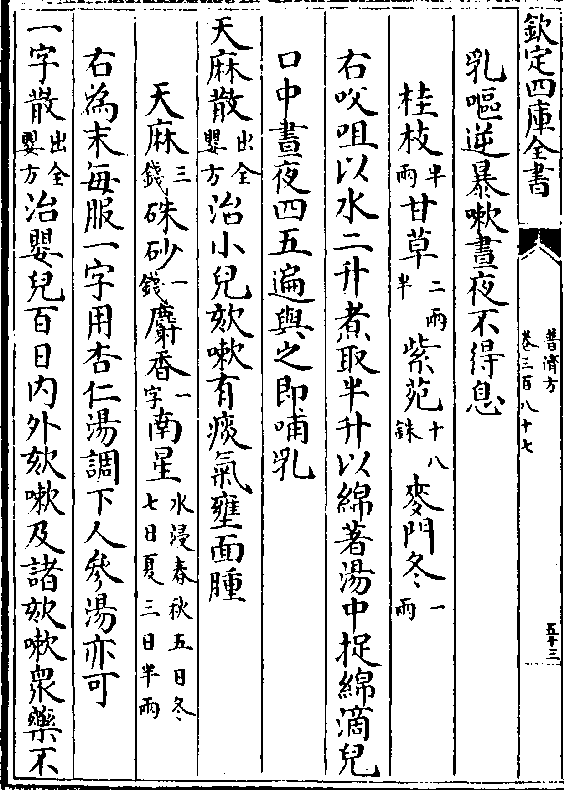 欽定四庫全書
普濟方
卷三百八十七
五十三
乳嘔逆暴嗽晝夜不得息
桂枝半兩甘草二兩半紫苑十八銖麥門冬一兩
右㕮咀以水二升煮取半升以綿著湯中捉綿滴兒
口中晝夜四五遍與之即哺乳
天麻散出全嬰方治小兒欬嗽有痰氣壅面腫
天麻三錢硃砂一錢麝香一字南星水浸春秋五日冬七日夏三日半兩
右為末每服一字用杏仁湯調下人參湯亦可
一字散出全嬰方治嬰兒百日内外欬嗽及諸欬嗽衆藥不